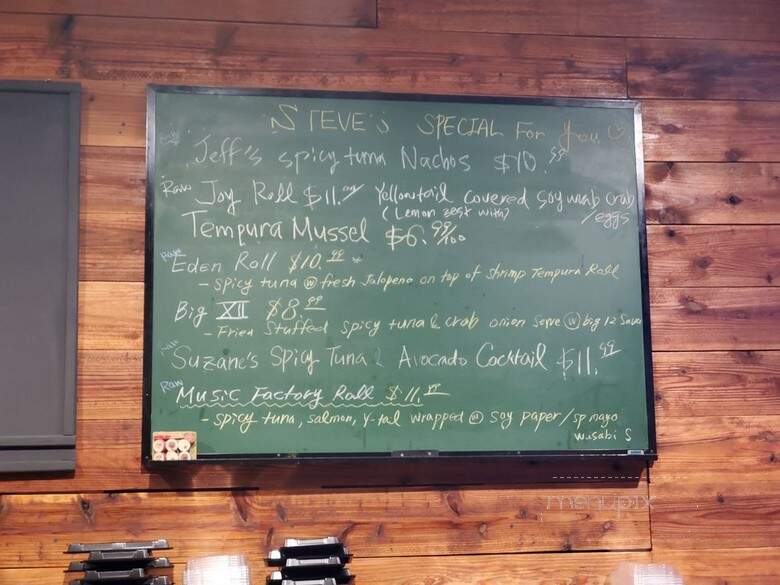 STEVE'S SPECIAL For You
Jeff's spicy tuna Nachos $10.99
Raw Joy Roll $11. Yellowtail covered soy wrab crab
(Lemon zest with) /eggs
Tempura Mussel $6.99/100
Raw
Eden Roll $10.99
- spicy tuna w fresh Jalapeno on top of Shrimp Tempura Roll
Big XII $8.99
- Fried Stuffed spicy tuna & crab onion serve w big 12 Sauce
Suzane's Spicy Tuna & Avocado Cocktail $11.99
Raw
Music Factory Roll $11.
- spicy tuna, salmon, Y-tail wrapped w soy paper/sp mayo
wusabi S
menupix